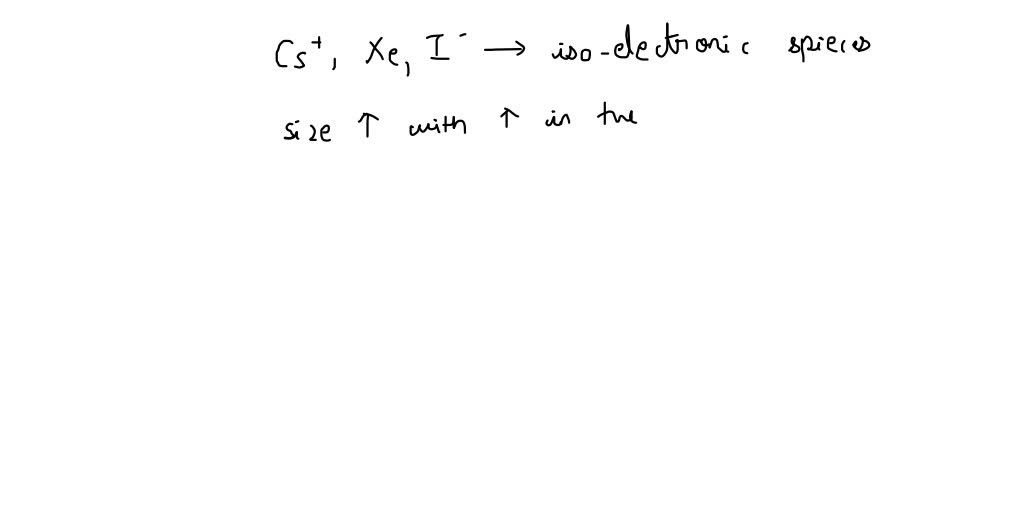 Cs⁺, Xe, I⁻ → iso-electronic spieces
size ↑ with ↑ in the